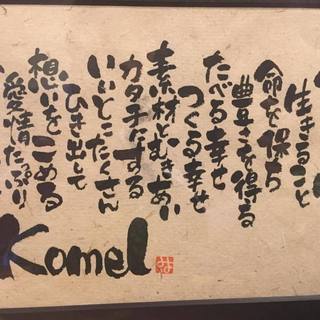 生きること
命を保ち
豊さを得る
たべる幸せ
つくる幸せ
素材とむきあい
カタチにする
いいとこたくさん
ひき出して
想いをこめる
愛情たっぷり
Kamel